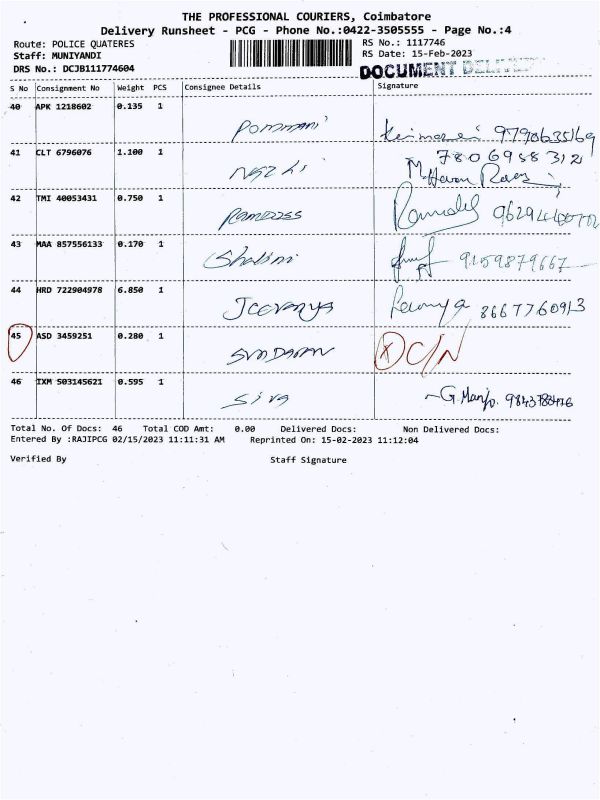 THE PROFESSIONAL COURIERS, Coimbatore
Delivery Runsheet - PCG - Phone No.:0422-3505555 - Page No.:4
Route: POLICE QUATERES RS No.: 1117746
Staff: MUNIYANDI RS Date: 15-Feb-2023
DRS No.: DCJB111774604 DOCUMENT
S No Consignment No Weight PCS Consignee Details Signature
40 APK 1218602 0.135 1
Pommani 9790635169
41 CLT 6796076 1.100 1 7806958312
42 TMI 40053431 0.750 1
43 MAA 857556133 0.170 1
Shalini 9159879667
44 HRD 722904978 6.850 1
Jeevanya 8667760913
45 ASD 3459251 0.280 1
SUNDARAN D C/N
46 IXM 503145621 0.595 1
Siva G. Manju.
Total No. Of Docs: 46 Total COD Amt: 0.00 Delivered Docs: Non Delivered Docs:
Entered By :RAJIPCG 02/15/2023 11:11:31 AM Reprinted On: 15-02-2023 11:12:04
Verified By Staff Signature